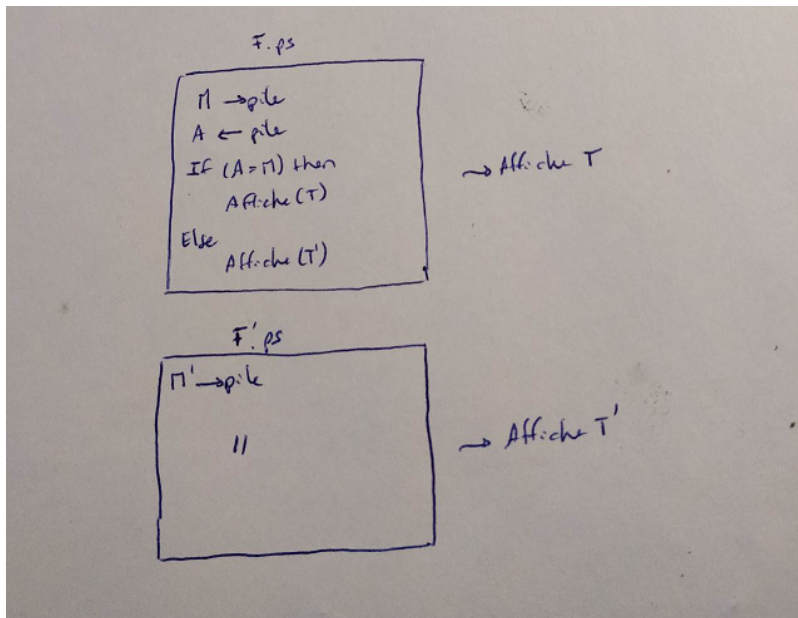 F.ps
M → pile
A ← pile
If (A=M) then
Affiche (T)
Else
Affiche (T')
→ Affiche T
F'.ps
M' → pile
//
→ Affiche T'